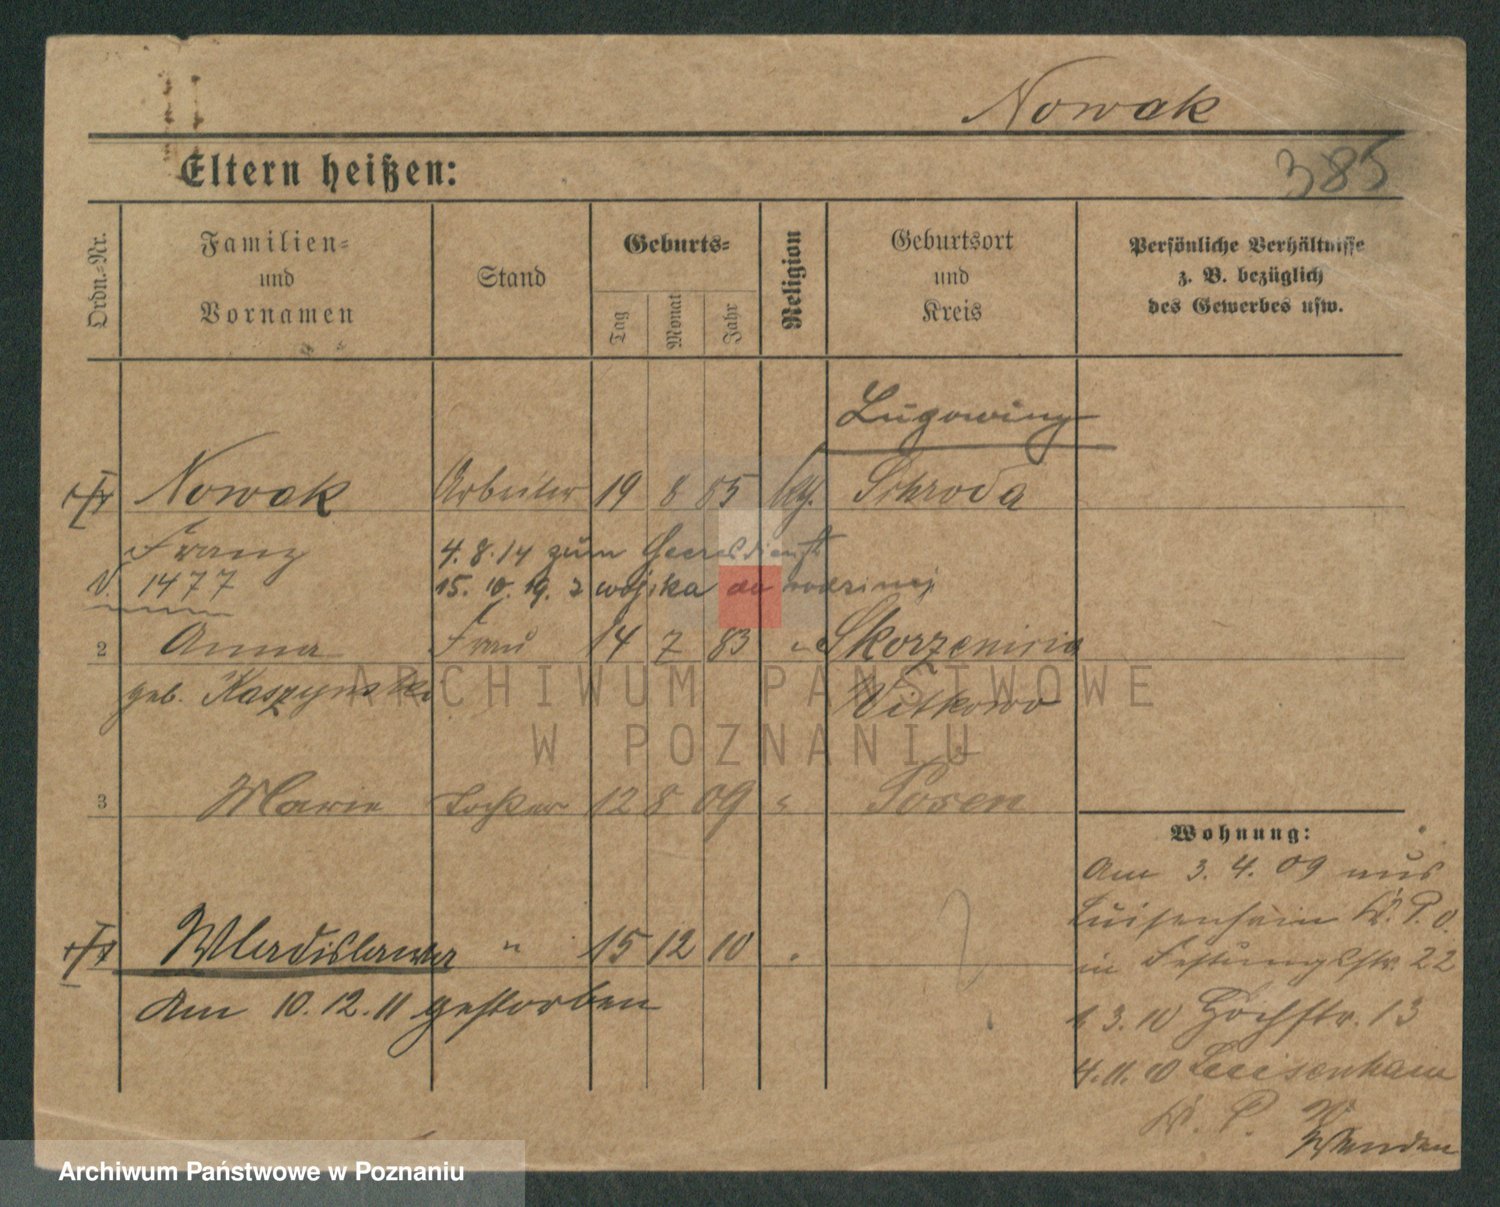 Nowak
385
Eltern heißen:
Ordn.-Nr.
Familien-
und
Vornamen
Stand
Geburts-
Tag
Monat
Jahr
Religion
Geburtsort
und
Kreis
Persönliche Verhältnisse
z. B. bezüglich
des Gewerbes usw.
Nowak Arbeiter 19 8 85 Schroda
Franz 4.8.14 zum Heeresdienst
V. 1477 15. 10. 19. z wojska do rodziny
2 Anna Frau 14 7 83 "
geb. Witkowo
3 Marie Tochter 12 8 09 " Posen
Wladislawa " 15 12 10
Am 10.12.11 gestorben
Wohnung:
Am 3. 4. 09 aus
Luisenhain K. P. O.
in Festungsstr. 22
1 3. 10 Hochstr. 13
4. 11. 10 Luisenhain
K. P. W
Wenden
ARCHIWUM PAŃSTWOWE
W POZNANIU
Archiwum Państwowe w Poznaniu